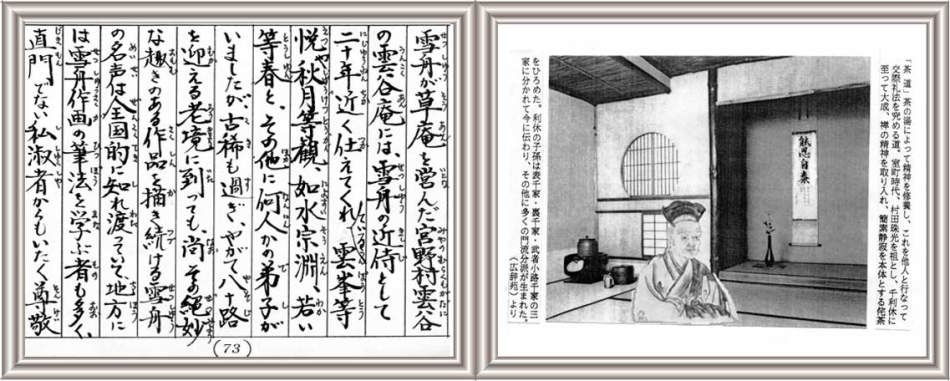 「茶道」茶の湯によって精神を修養し、これを他人と行なって
交際礼法を究める道。室町時代、村田珠光を祖とし、千利休に
至って大成、禅の精神を取り入れ、簡素静寂を本体とする侘茶
をひろめた。利休の子孫は表千家・裏千家・武者小路千家の三
家に分かれて今に伝わり、その他に多くの門流分派が生まれた。
(広辞苑)より
雪舟が草庵を営んだ宮野村雲谷
の雲谷庵には、雪舟の近侍として
二十年近く仕えてくれている雲峯等
悦や秋月等観、如水宗淵、若い
等春と、その他に何人かの弟子が
いましたが古稀も過ぎ、やがて八十路
を迎える老境に到っても、尚その絶妙
な趣きのある作品を描き続ける雪舟
の名声は全国的に知れ渡っていて、地方に
は雪舟作画の筆法を学ぶ者も多く、
直門でない私淑者からもいたく尊敬
(73)